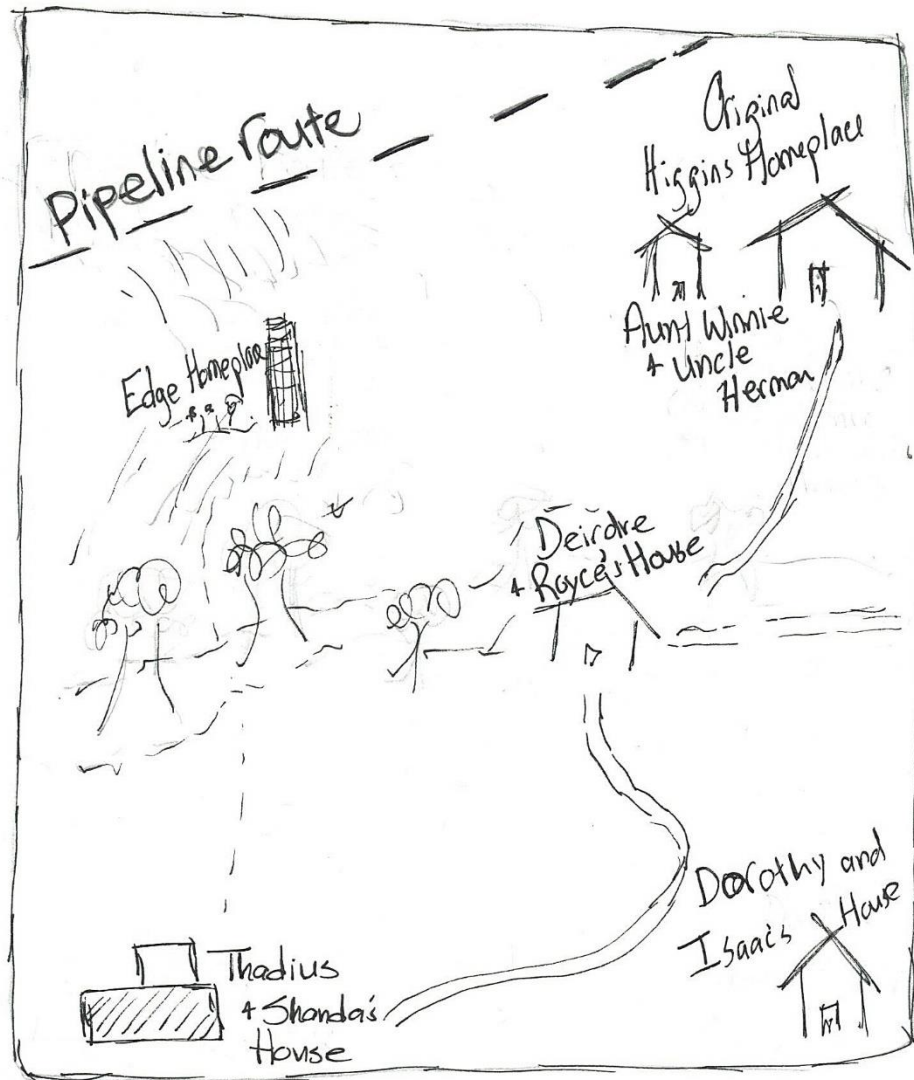 Pipeline route
Original
Higgins Homeplace
Aunt Winnie
+ Uncle
Herman
Edge Homeplace
Deirdre
+ Royce's House
Dorothy and
Isaac's House
Thadius
+ Shanda's
House